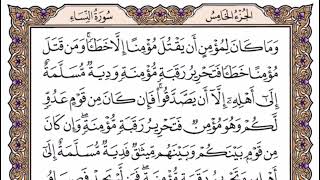 الجزء الخامس
سورة النساء
وَمَا كَانَ لِمُؤْمِنٍ أَن يَقْتُلَ مُؤْمِنًا إِلَّا خَطَـًٔا ۚ وَمَن قَتَلَ
مُؤْمِنًا خَطَـًٔا فَتَحْرِيرُ رَقَبَةٍ مُّؤْمِنَةٍ وَدِيَةٌ مُّسَلَّمَةٌ
إِلَىٰٓ أَهْلِهِۦٓ إِلَّآ أَن يَصَّدَّقُوا۟ ۚ فَإِن كَانَ مِن قَوْمٍ عَدُوٍّ
لَّكُمْ وَهُوَ مُؤْمِنٌ فَتَحْرِيرُ رَقَبَةٍ مُّؤْمِنَةٍ ۖ وَإِن كَانَ
مِن قَوْمٍۭ بَيْنَكُمْ وَبَيْنَهُم مِّيثَـٰقٌ فَدِيَةٌ مُّسَلَّمَةٌ إِلَىٰٓ
أَهْلِهِۦ وَتَحْرِيرُ رَقَبَةٍ مُّؤْمِنَةٍ ۖ فَمَن لَّمْ يَجِدْ فَصِيَامُ